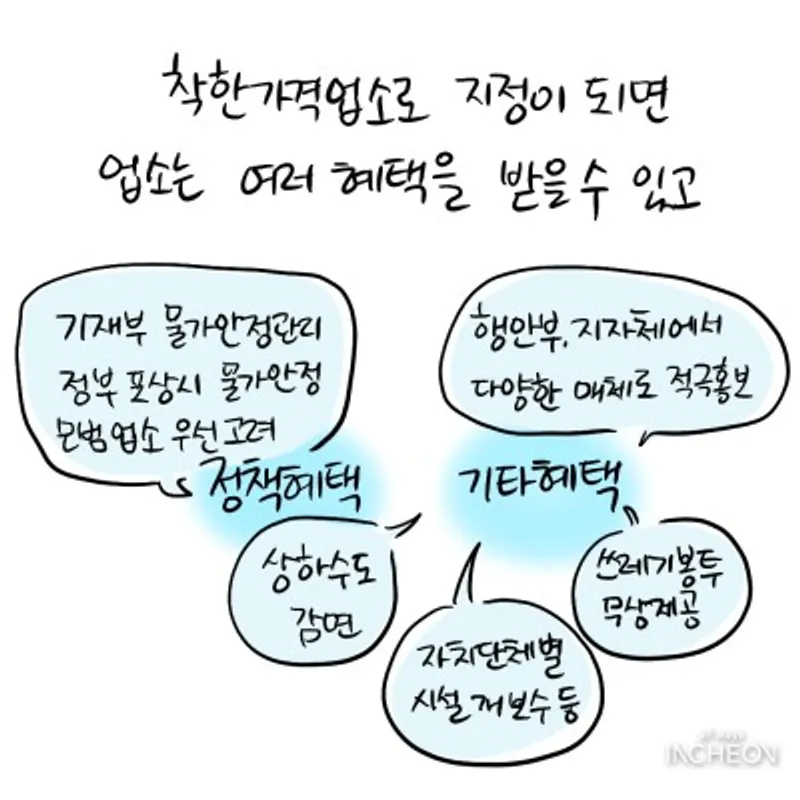 착한가격업소로 지정이 되면
업소는 여러 혜택을 받을 수 있고
기재부 물가안정관리
정부 포상시 물가안정
모범업소 우선고려
정책혜택
상하수도
감면
행안부, 지자체에서
다양한 매체로 적극홍보
기타혜택
쓰레기봉투
무상제공
자치단체별
시설개보수 등
all ways
INCHEON